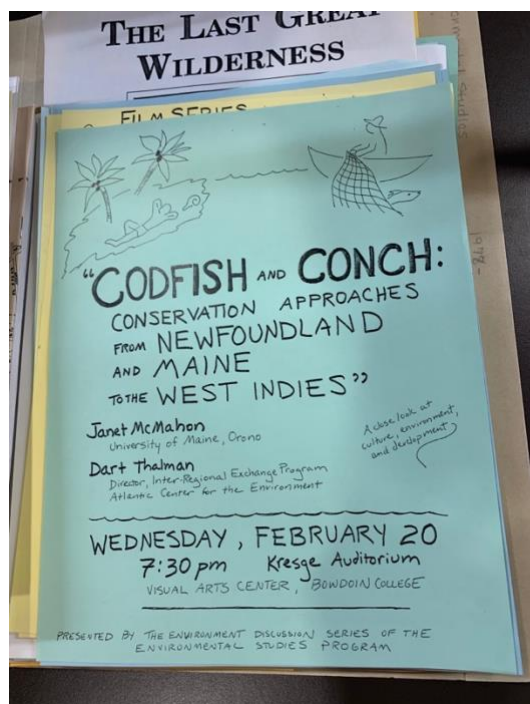 THE LAST GREAT
WILDERNESS
FILM SERIES
"CODFISH AND CONCH:
CONSERVATION APPROACHES
FROM NEWFOUNDLAND
AND MAINE
TO THE WEST INDIES"
Janet McMahon
University of Maine, Orono
Dart Thalman
Director, Inter-Regional Exchange Program
Atlantic Center for the Environment
A close look at
culture, environment,
and development
WEDNESDAY, FEBRUARY 20
7:30 pm Kresge Auditorium
VISUAL ARTS CENTER, BOWDOIN COLLEGE
PRESENTED BY THE ENVIRONMENT DISCUSSION SERIES OF THE
ENVIRONMENTAL STUDIES PROGRAM